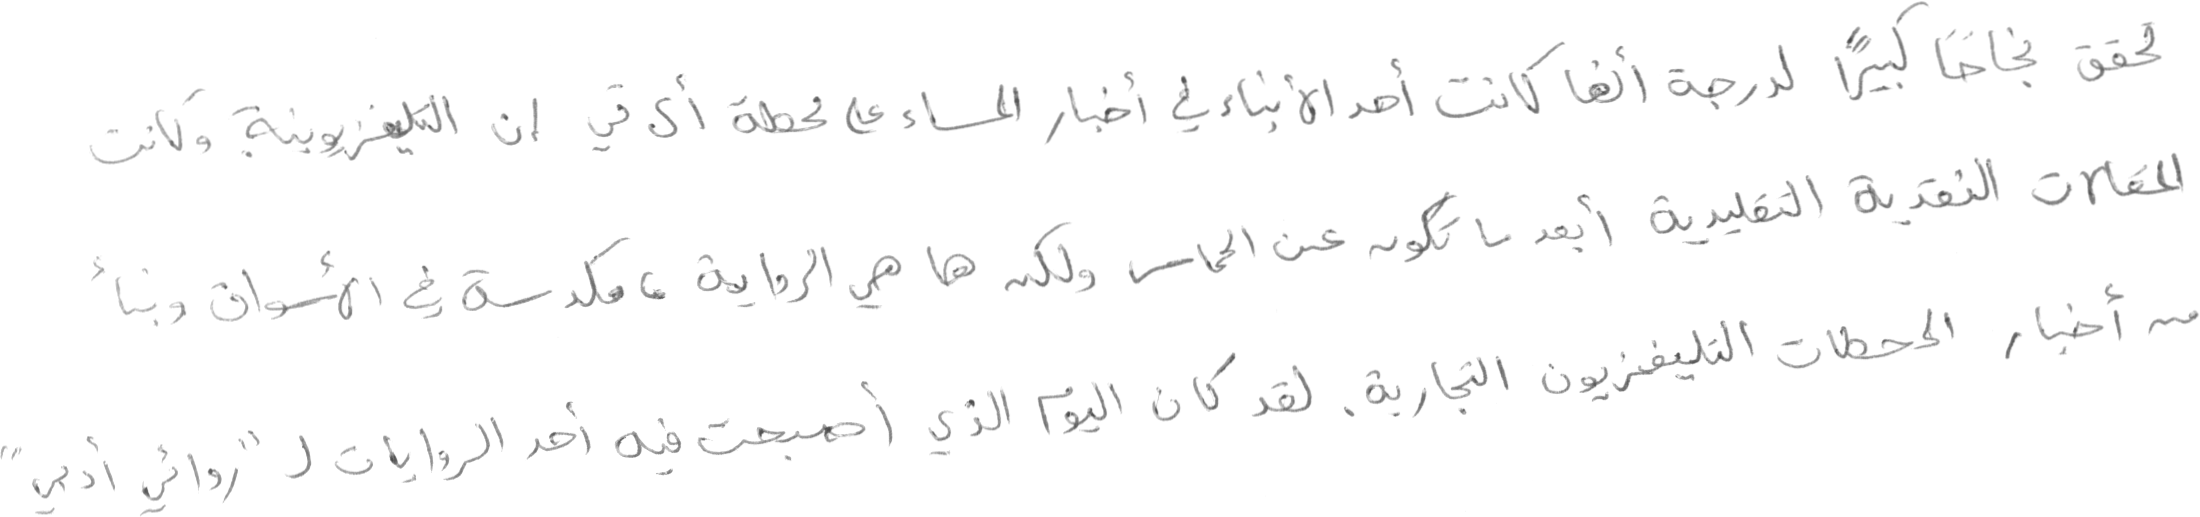 تحقق نجاحًا كبيرًا لدرجة أنها كانت أحد الأنباء في أخبار المساء على محطة أى تي إن التليفزيونية وكانت
المقالات النقدية التقليدية أبعد ما تكون عن الحماس ولكن ها هي الرواية مكدسة في الأسواق ونبأ
من أخبار المحطات التليفزيون التجارية. لقد كان اليوم الذي أصبحت فيه أحد الروايات لـ "روائي أدبي"